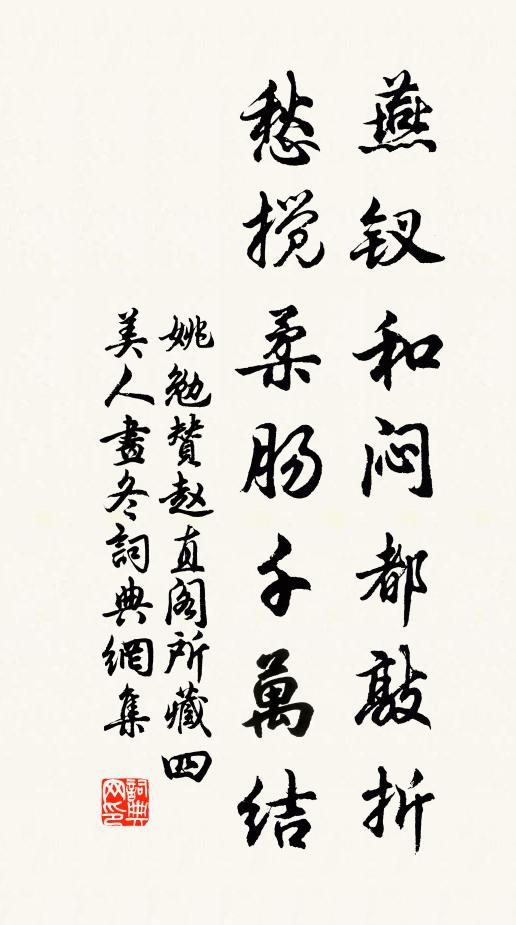 燕钗和闷都敲折
愁搅柔肠千萬结
姚勉赞赵直阁所藏四
美人畫冬詞典網集
詞典
网印